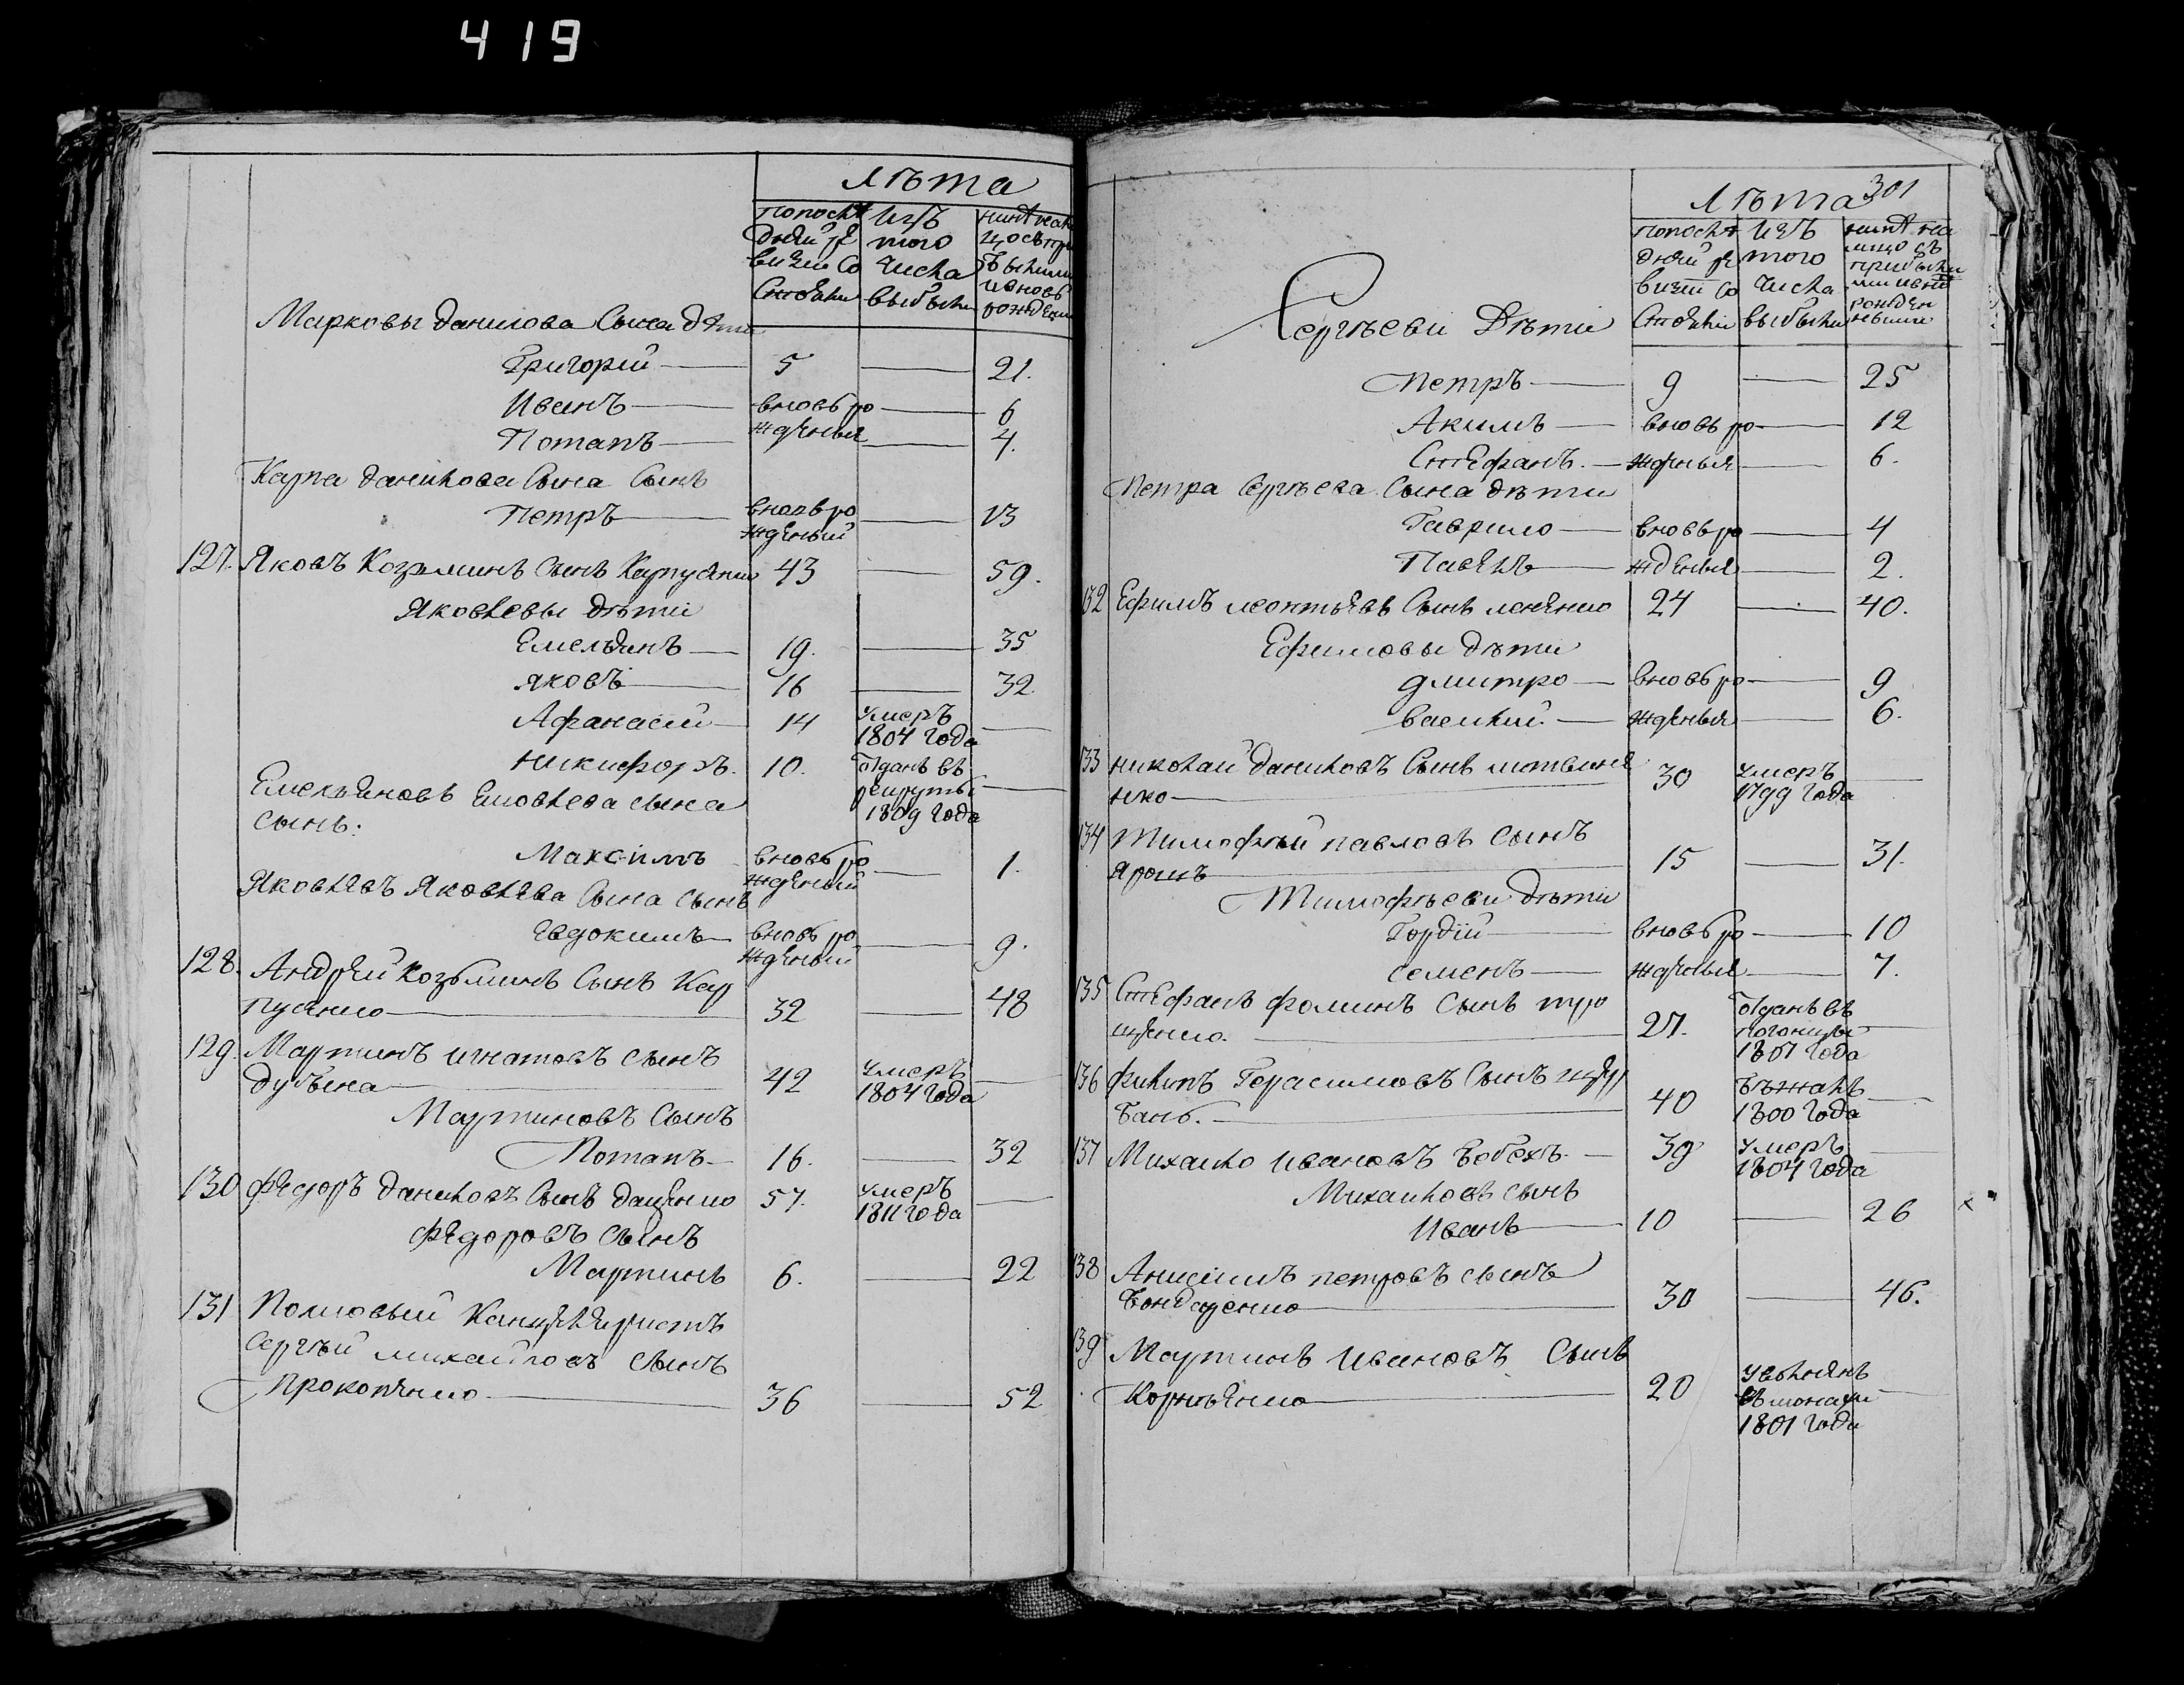 419
Лѣта
попослѣ
дней ре
визiи со
стояли
изъ
того
числа
выбыли
нынѣ на
лицо съ при
былыми
и вновь
рожденн
Марковы данилова Сына дѣти
Григорiй — 5 — 21.
Иванъ — вновь ро — 6
Потапъ — жденыя — 4.
Карпа данилова Сына Сынъ
Петръ — вновь ро — 13
жденый
127. Яковъ Козминъ Сынъ Карпусенко 43 — 59.
Яковлевы дѣти
Емельянъ — 19. — 35
яковъ — 16 — 32
Афанасiй — 14 умеръ —
1804 года
никифоръ. 10. отданъ въ
рекруты —
1809 года
Емельяновъ Яковлева сына
сынъ.
Максiмъ вновь ро — 1.
жденый
Яковлевъ Яковлева Сына сынъ
Евдокимъ — вновь ро — 9.
жденый
128. Андрей Козьминъ Сынъ Кар
пусенко — 32 — 48
129. Мартинъ игнатовъ сынъ
дубына — 42 умеръ —
1804 года
Мартиновъ Сынъ
Потапъ — 16. — 32
130 федоръ даниловъ Сынъ даценко 57. умеръ —
1811 года
федоровъ сынъ
Мартинъ 6. — 22
131 Полковый Канцеляристъ
Сергѣй михайловъ сынъ
Прокопенко — 36 — 52
Лѣта 301
попослѣ
дней ре
визiи со
стояли
изъ
того
числа
выбыли
нынѣ на
лицо съ
прибылы
ми и внов
рожден
ными
Сергѣеви Дѣти
Петръ — 9 — 25
Акимъ — вновь ро — 12
Стефанъ. — жденыя — 6.
Петра Сергѣева Сына дѣти
Гаврило — вновь ро — 4
Павелъ — жденыя — 2.
132 Ефимъ леонтьевъ Сынъ 24 — 40.
Ефимовы дѣти
дмитро — вновь ро — 9
василий. — жденыя — 6.
133 николай даниловъ Сынъ литвине
нко — 30 умеръ —
1799 года
134 Тимофѣй павловъ Сынъ
ярошъ — 15 — 31.
Тимофѣеви дѣти
Гордiй — вновь ро — 10
семенъ — жденыя — 7.
135 Стефанъ фоминъ Сынъ тро
щенко. — 27. отданъ въ
погонцы —
1807 года
136 филипъ Герасимовъ Сынъ щер
бань. — 40 бѣжалъ —
1800 года
137 Михайло ивановъ бобехъ — 39 умеръ —
1804 года
Михайловъ сынъ
Иванъ — 10 — 26 x
138 Анисiмъ петровъ сынъ
бондаренко — 30 — 46.
139 Мартинъ ивановъ Сынъ
Корнѣенко — 20 уволненъ
въ монахи —
1801 года